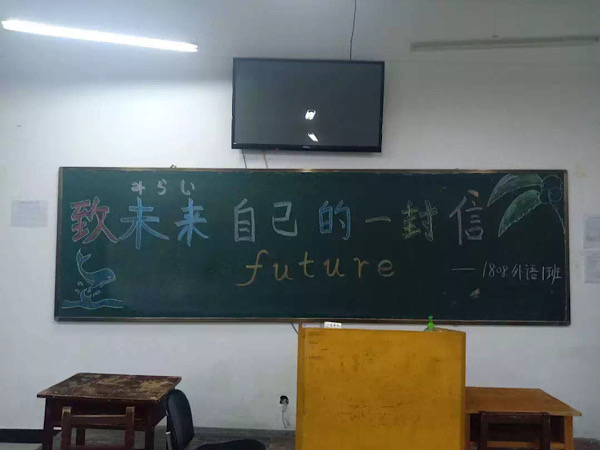 みらい
致未来自己的一封信
future
—1808外语1班